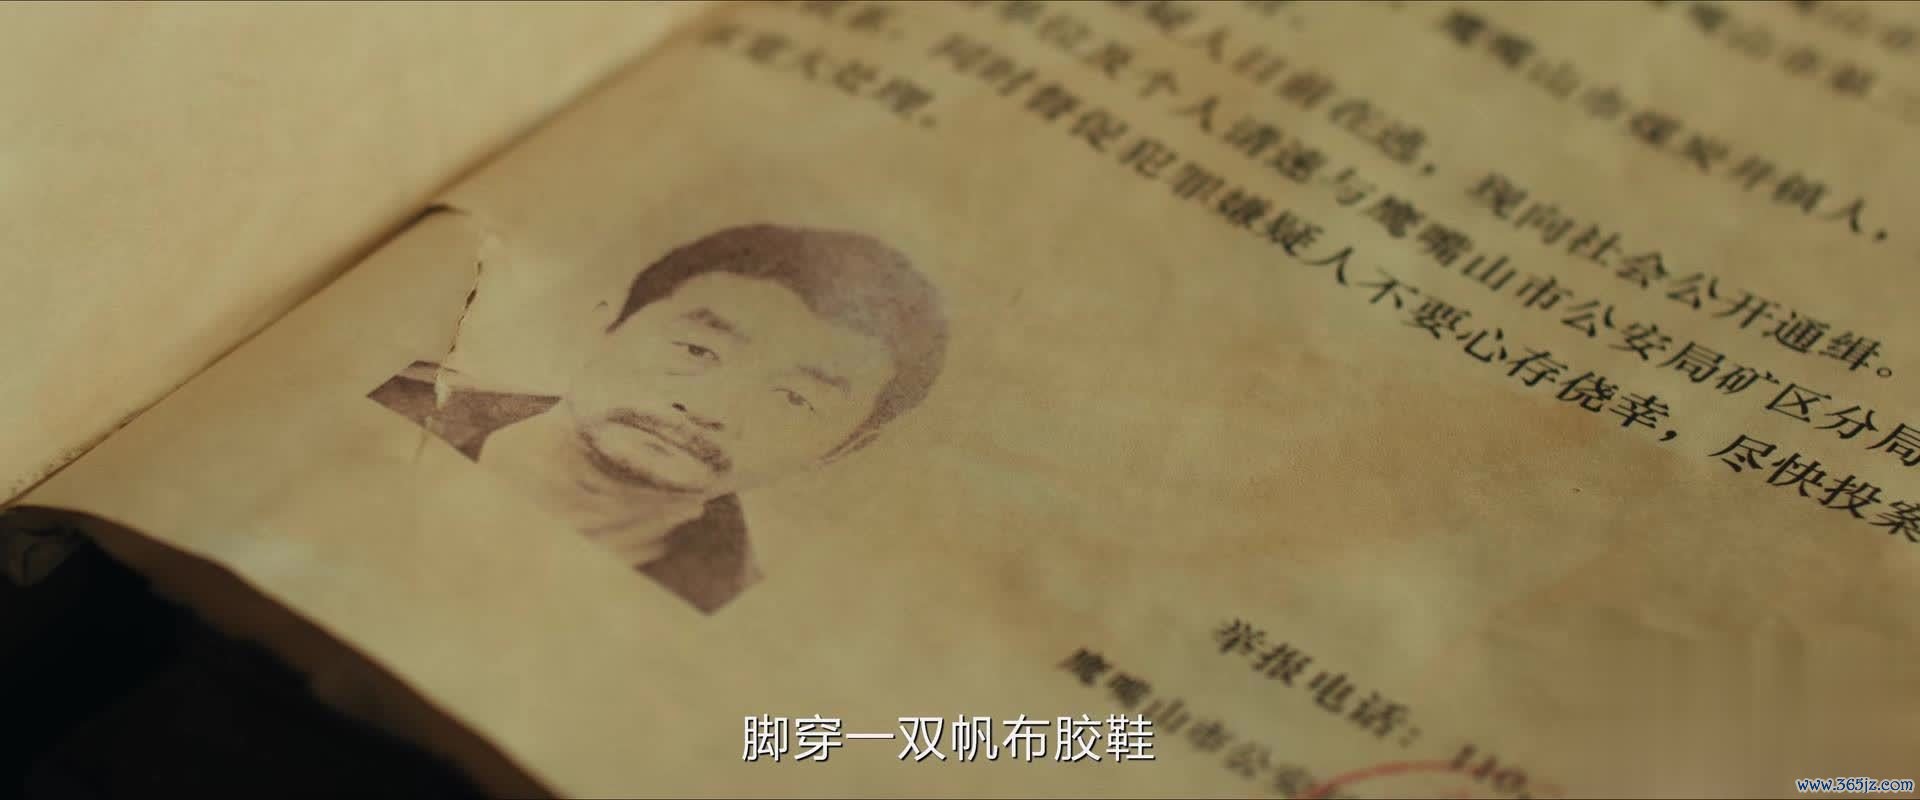 鹰嘴山市煤炭井镇人，
疑人目前在逃，现向社会公开通缉。
单位及个人请速与鹰嘴山市公安局矿区分局
联系，同时督促犯罪嫌疑人不要心存侥幸，尽快投案
宽大处理。
举报电话：110
鹰嘴山市公安
脚穿一双帆布胶鞋
www.365jz.com